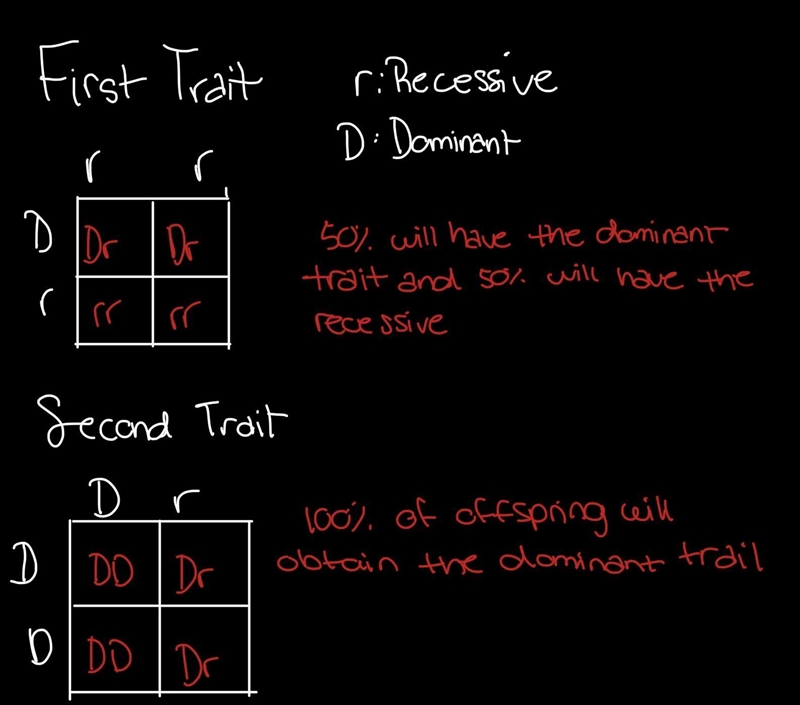 First Trait
r: Recessive
D: Dominant
r r
D Dr Dr
r rr rr
50% will have the dominant
trait and 50% will have the
recessive
Second Trait
D r
D DD Dr
D DD Dr
100% of offspring will
obtain the dominant trail